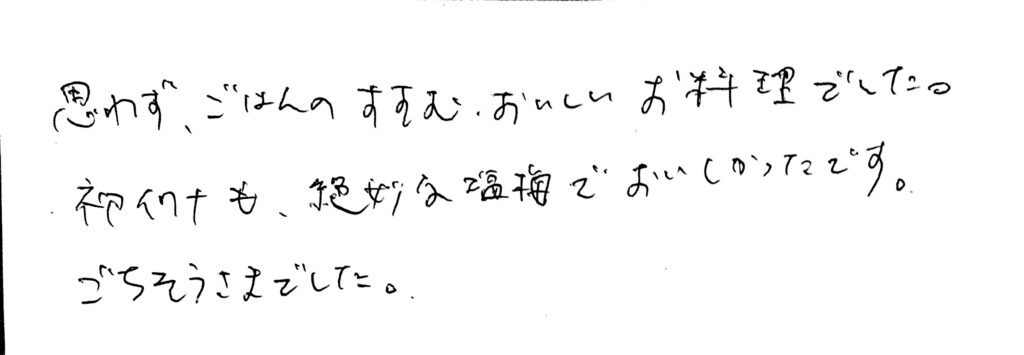 思わず、ごはんのすすむ、おいしいお料理でした。
味付も、絶妙な塩梅でおいしかったです。
ごちそうさまでした。